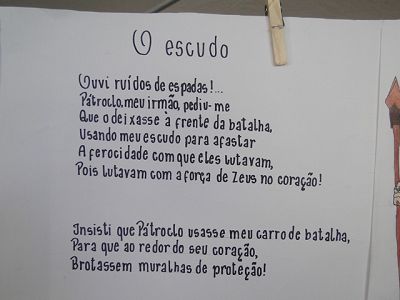 O escudo
Ouvi ruídos de espadas!...
Pátroclo, meu irmão, pediu-me
Que o deixasse à frente da batalha,
Usando meu escudo para afastar
A ferocidade com que eles lutavam,
Pois lutavam com a força de Zeus no coração!
Insisti que Pátroclo usasse meu carro de batalha,
Para que ao redor do seu coração,
Brotassem muralhas de proteção!